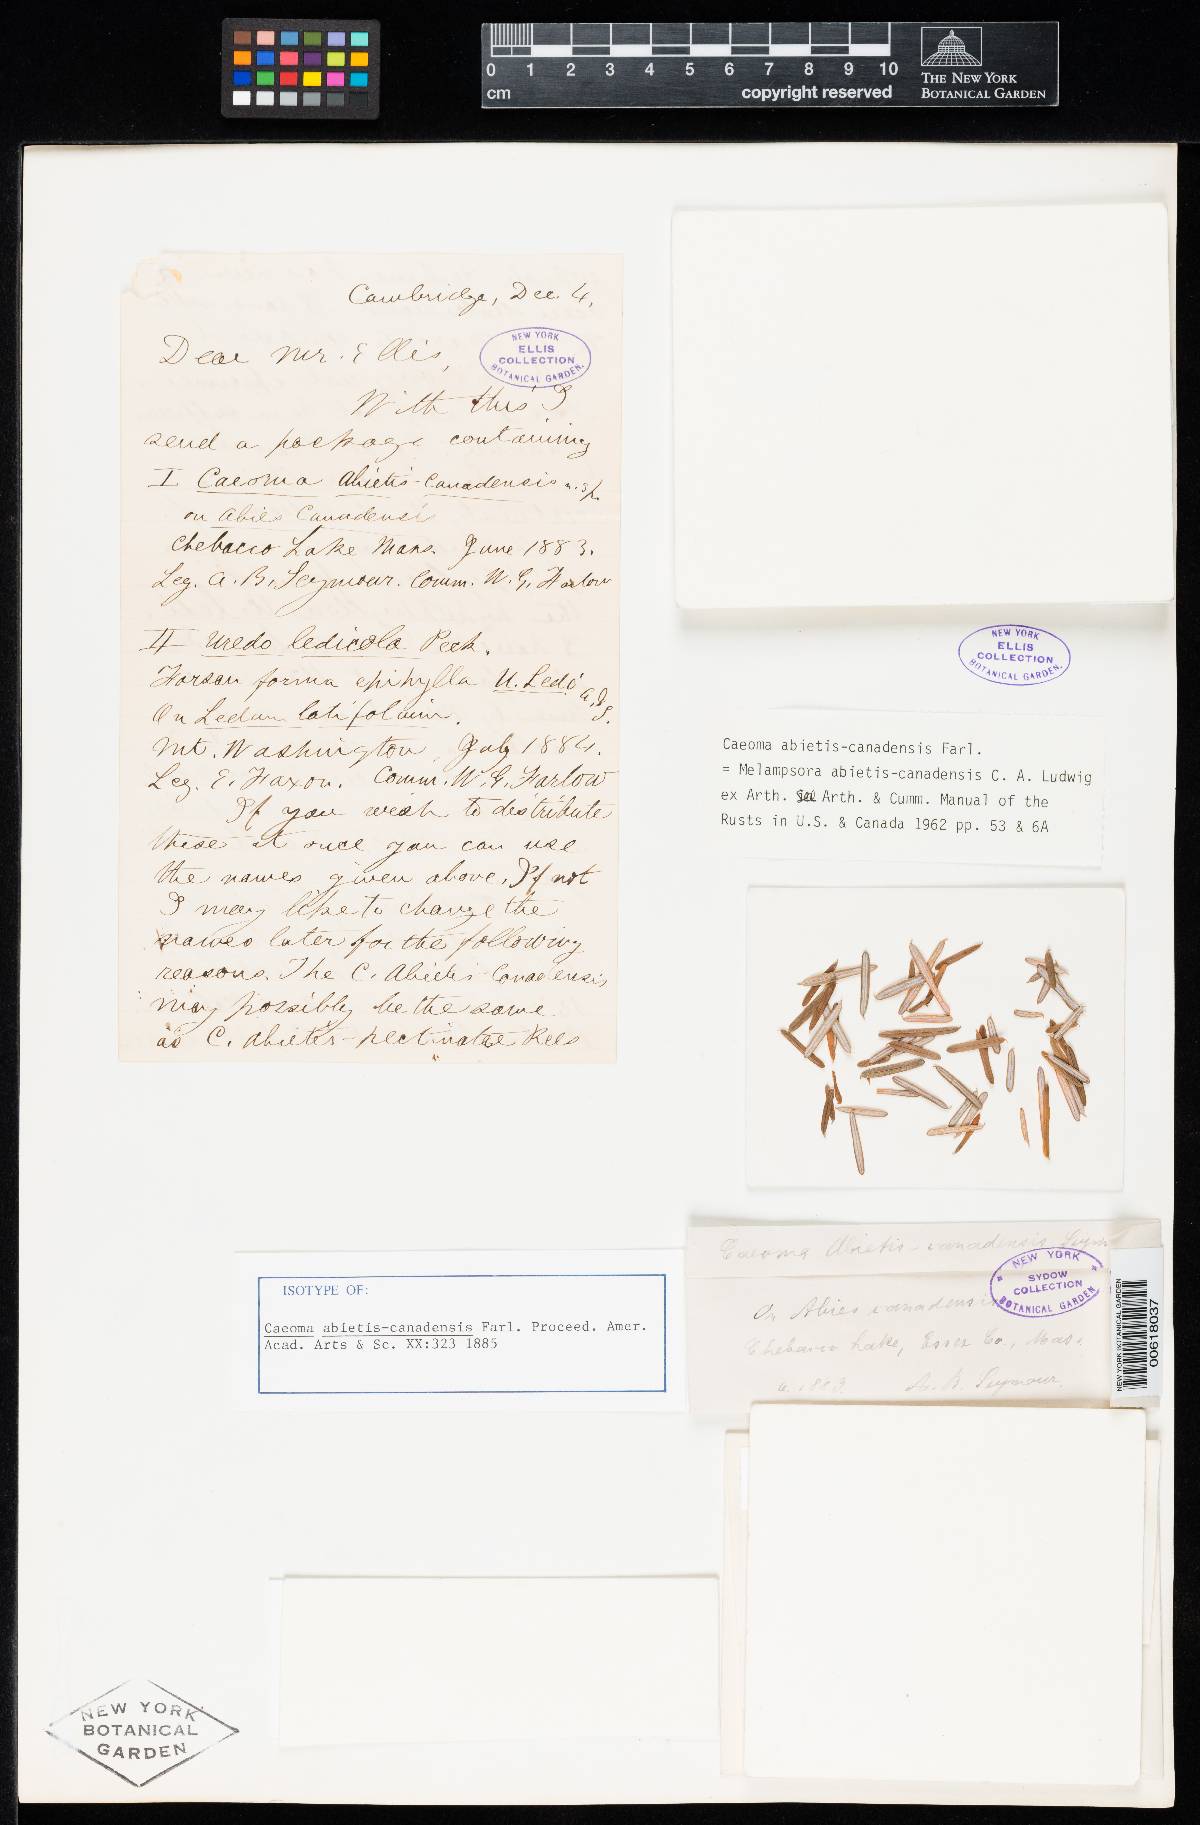 0 1 2 3 4 5 6 7 8 9 10
cm
copyright reserved
THE NEW YORK
BOTANICAL GARDEN
Cambridge, Dec. 4,
Dear Mr. Ellis,
NEW YORK
ELLIS
COLLECTION
BOTANICAL GARDEN.
With this I
send a package containing
I Caeoma Abietis-Canadensis n. sp.
on Abies Canadensis
Chebacco Lake Mass. June 1883.
Leg. A. B. Seymour. Comm. W. G. Farlow
II Uredo ledicola Peck.
Forsan forma epiphylla U. Ledi
On Ledum latifolium.
Mt. Washington, July 1884.
Leg. E. Faxon. Comm. W. G. Farlow
If you wish to distribute
these at once you can use
the names given above. If not
I may like to change the
names later for the following
reasons. The C. Abietis Canadensis
may possibly be the same
as C. Abietis-pectinatae Rees
NEW YORK
ELLIS
COLLECTION
BOTANICAL GARDEN.
Caeoma abietis-canadensis Farl.
= Melampsora abietis-canadensis C. A. Ludwig
ex Arth. See Arth. & Cumm. Manual of the
Rusts in U.S. & Canada 1962 pp. 53 & 6A
Caeoma Abietis-canadensis
NEW YORK
SYDOW
COLLECTION
BOTANICAL GARDEN
On Abies canadensis
Chebacco Lake, Essex Co., Mass.
1883. A. B. Seymour.
NEW YORK BOTANICAL GARDEN
00618037
ISOTYPE OF:
Caeoma abietis-canadensis Farl. Proceed. Amer.
Acad. Arts & Sc. XX:323 1885
NEW YORK
BOTANICAL
GARDEN